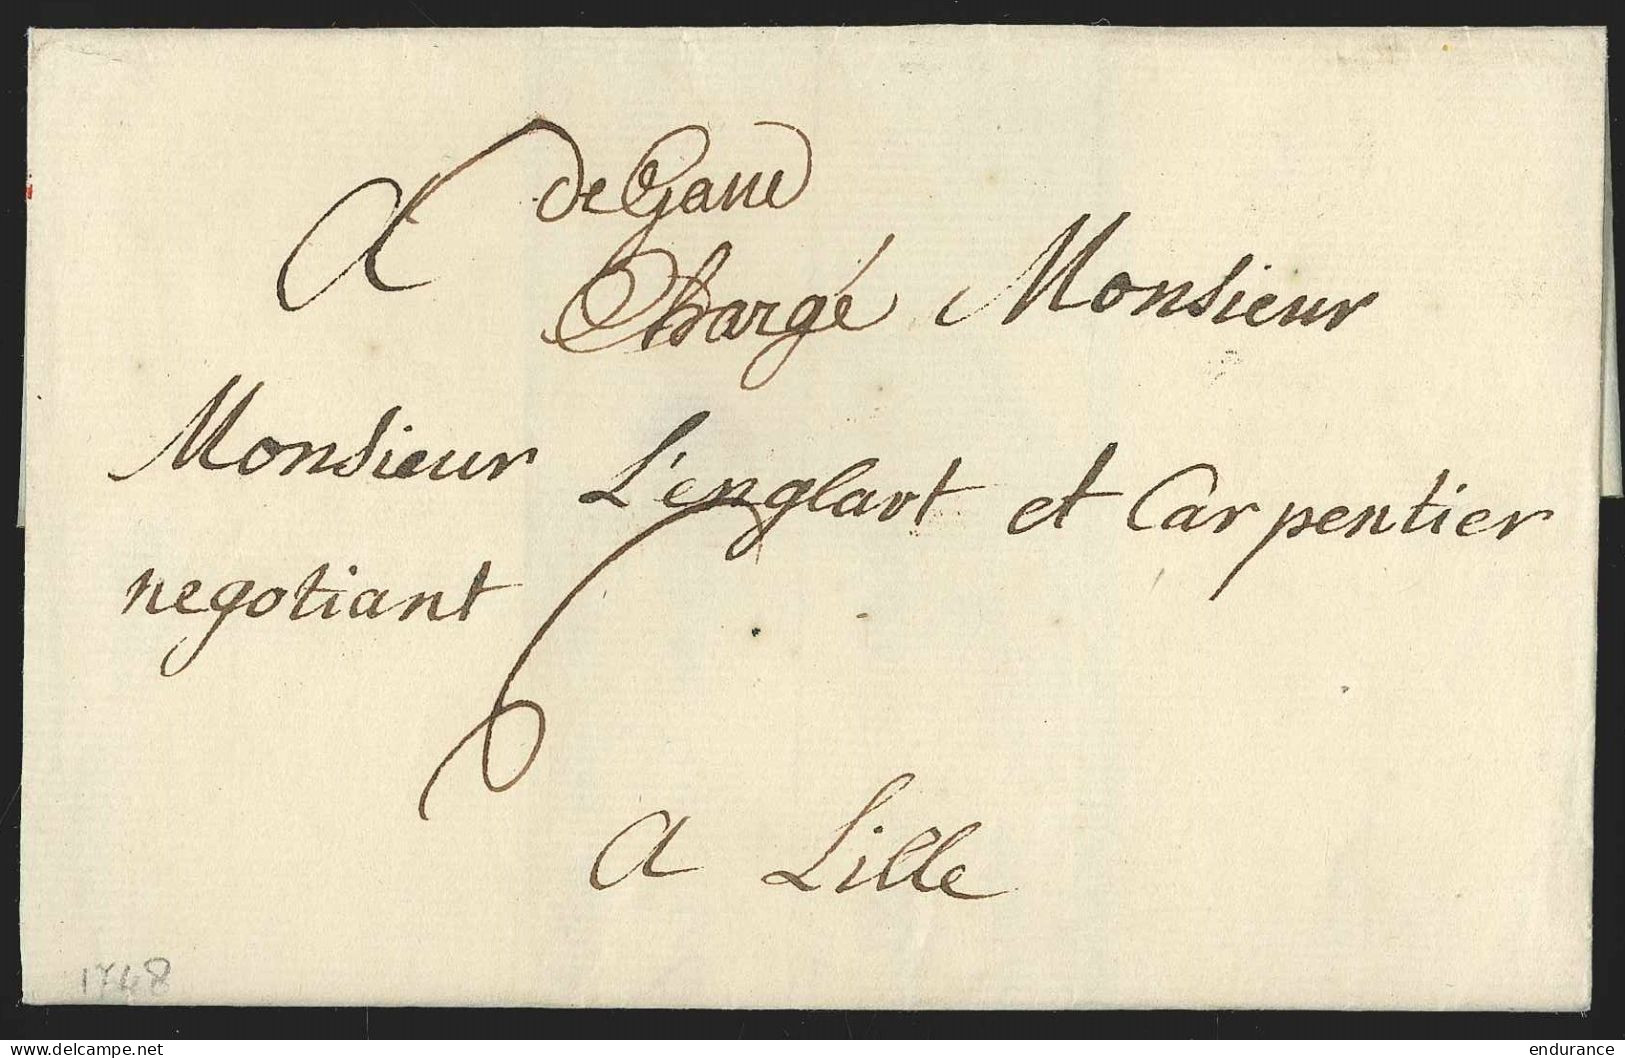 de Gand
A Chargé Monsieur
Monsieur L'englart et Carpentier
negotiant
6
a Lille
1748
delcampe.net
endurance